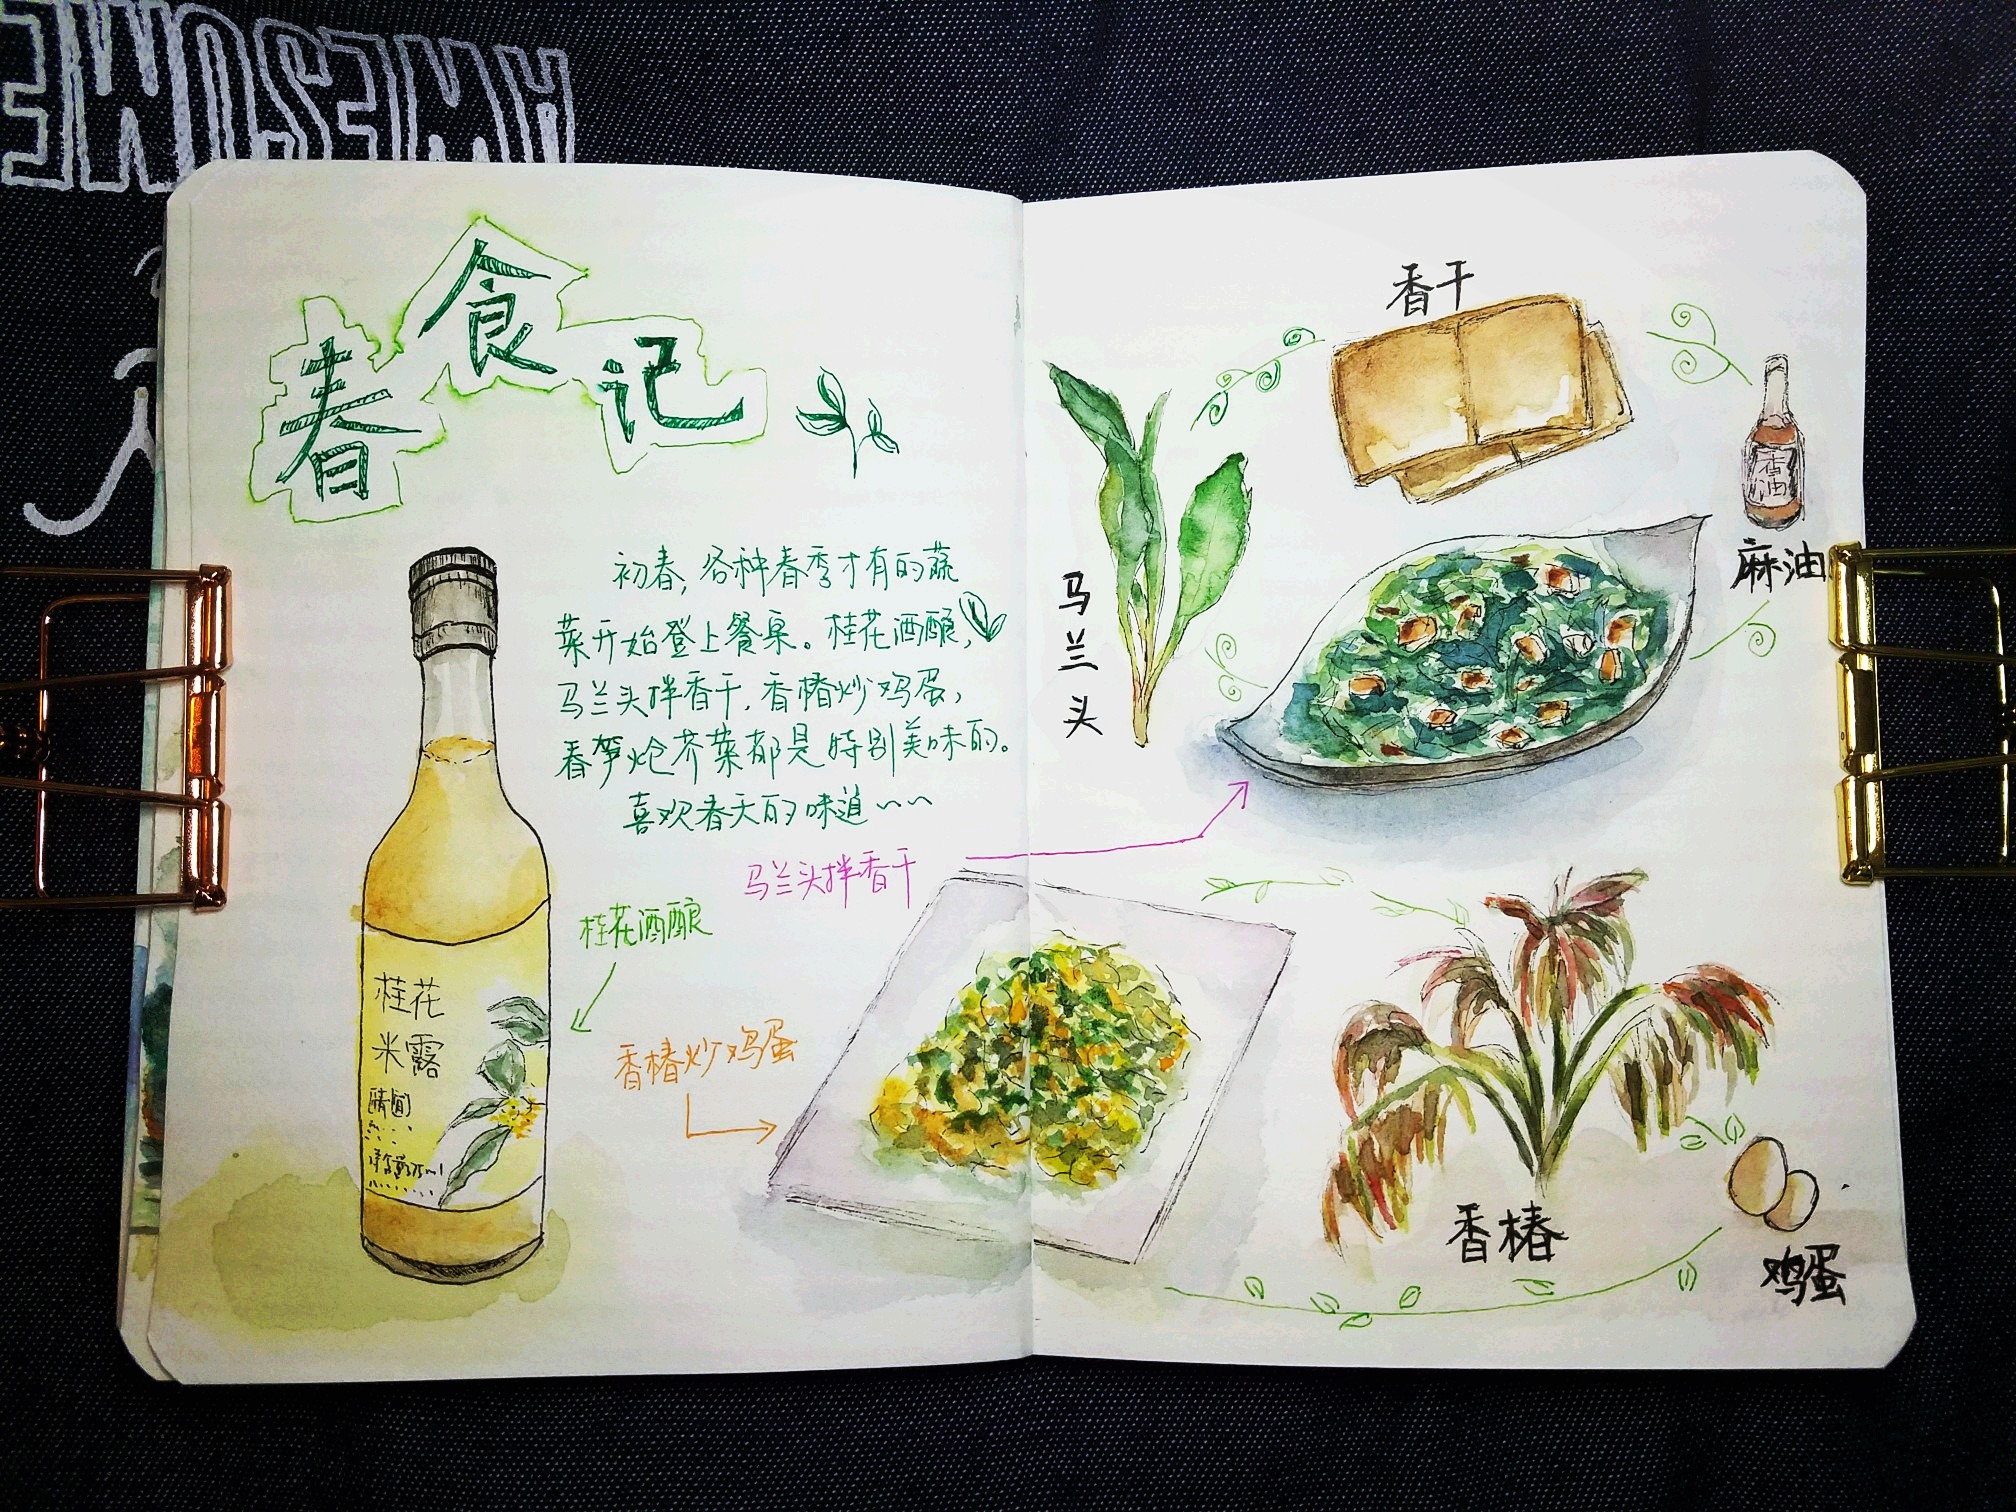 AWESOME
春食记
初春,各种春季才有的蔬
菜开始登上餐桌。桂花酒酿,
马兰头拌香干,香椿炒鸡蛋,
春笋炝芥菜都是特别美味的。
喜欢春天的味道~~
马兰头拌香干
桂花酒酿
香椿炒鸡蛋
桂花
米露
香干
马兰头
香油
麻油
香椿
鸡蛋